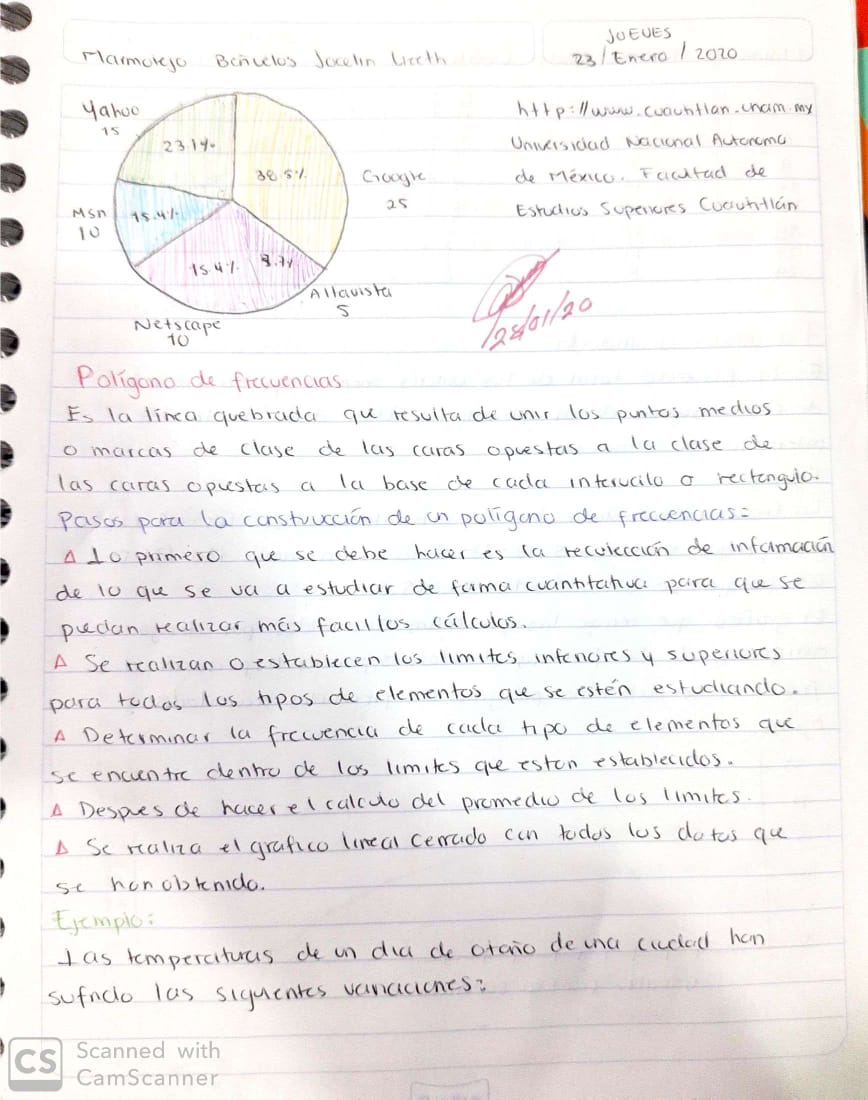 JUEVES
Marmolejo Bañuelos Jocelin Lizeth
23/Enero/2020
Yahoo
15
23.1%
38.5%
Google
25
Msn
10
15.4%
15.4%
Altavista
5
Netscape
10
http://www.cuautitlan.unam.mx
Universidad Nacional Autonoma
de México. Facultad de
Estudios Superiores Cuautitlán
28/01/20
Polígono de frecuencias
Es la línea quebrada que resulta de unir los puntos medios
o marcas de clase de las caras opuestas a la clase de
las caras opuestas a la base de cada intervalo o rectangulo.
Pasos para la construcción de un polígono de frecuencias:
Δ Lo primero que se debe hacer es la recolección de información
de lo que se va a estudiar de forma cuantitativa para que se
puedan realizar más facil los cálculos.
Δ Se realizan o establecen los limites inferiores y superiores
para todos los tipos de elementos que se estén estudiando.
Δ Determinar la frecuencia de cada tipo de elementos que
se encuentre dentro de los limites que esten establecidos.
Δ Despues de hacer el calculo del promedio de los limites.
Δ Se realiza el grafico lineal cerrado con todos los datos que
se han obtenido.
Ejemplo:
Las temperaturas de un dia de otoño de una ciudad han
sufrido las siguientes variaciones:
CS Scanned with
CamScanner